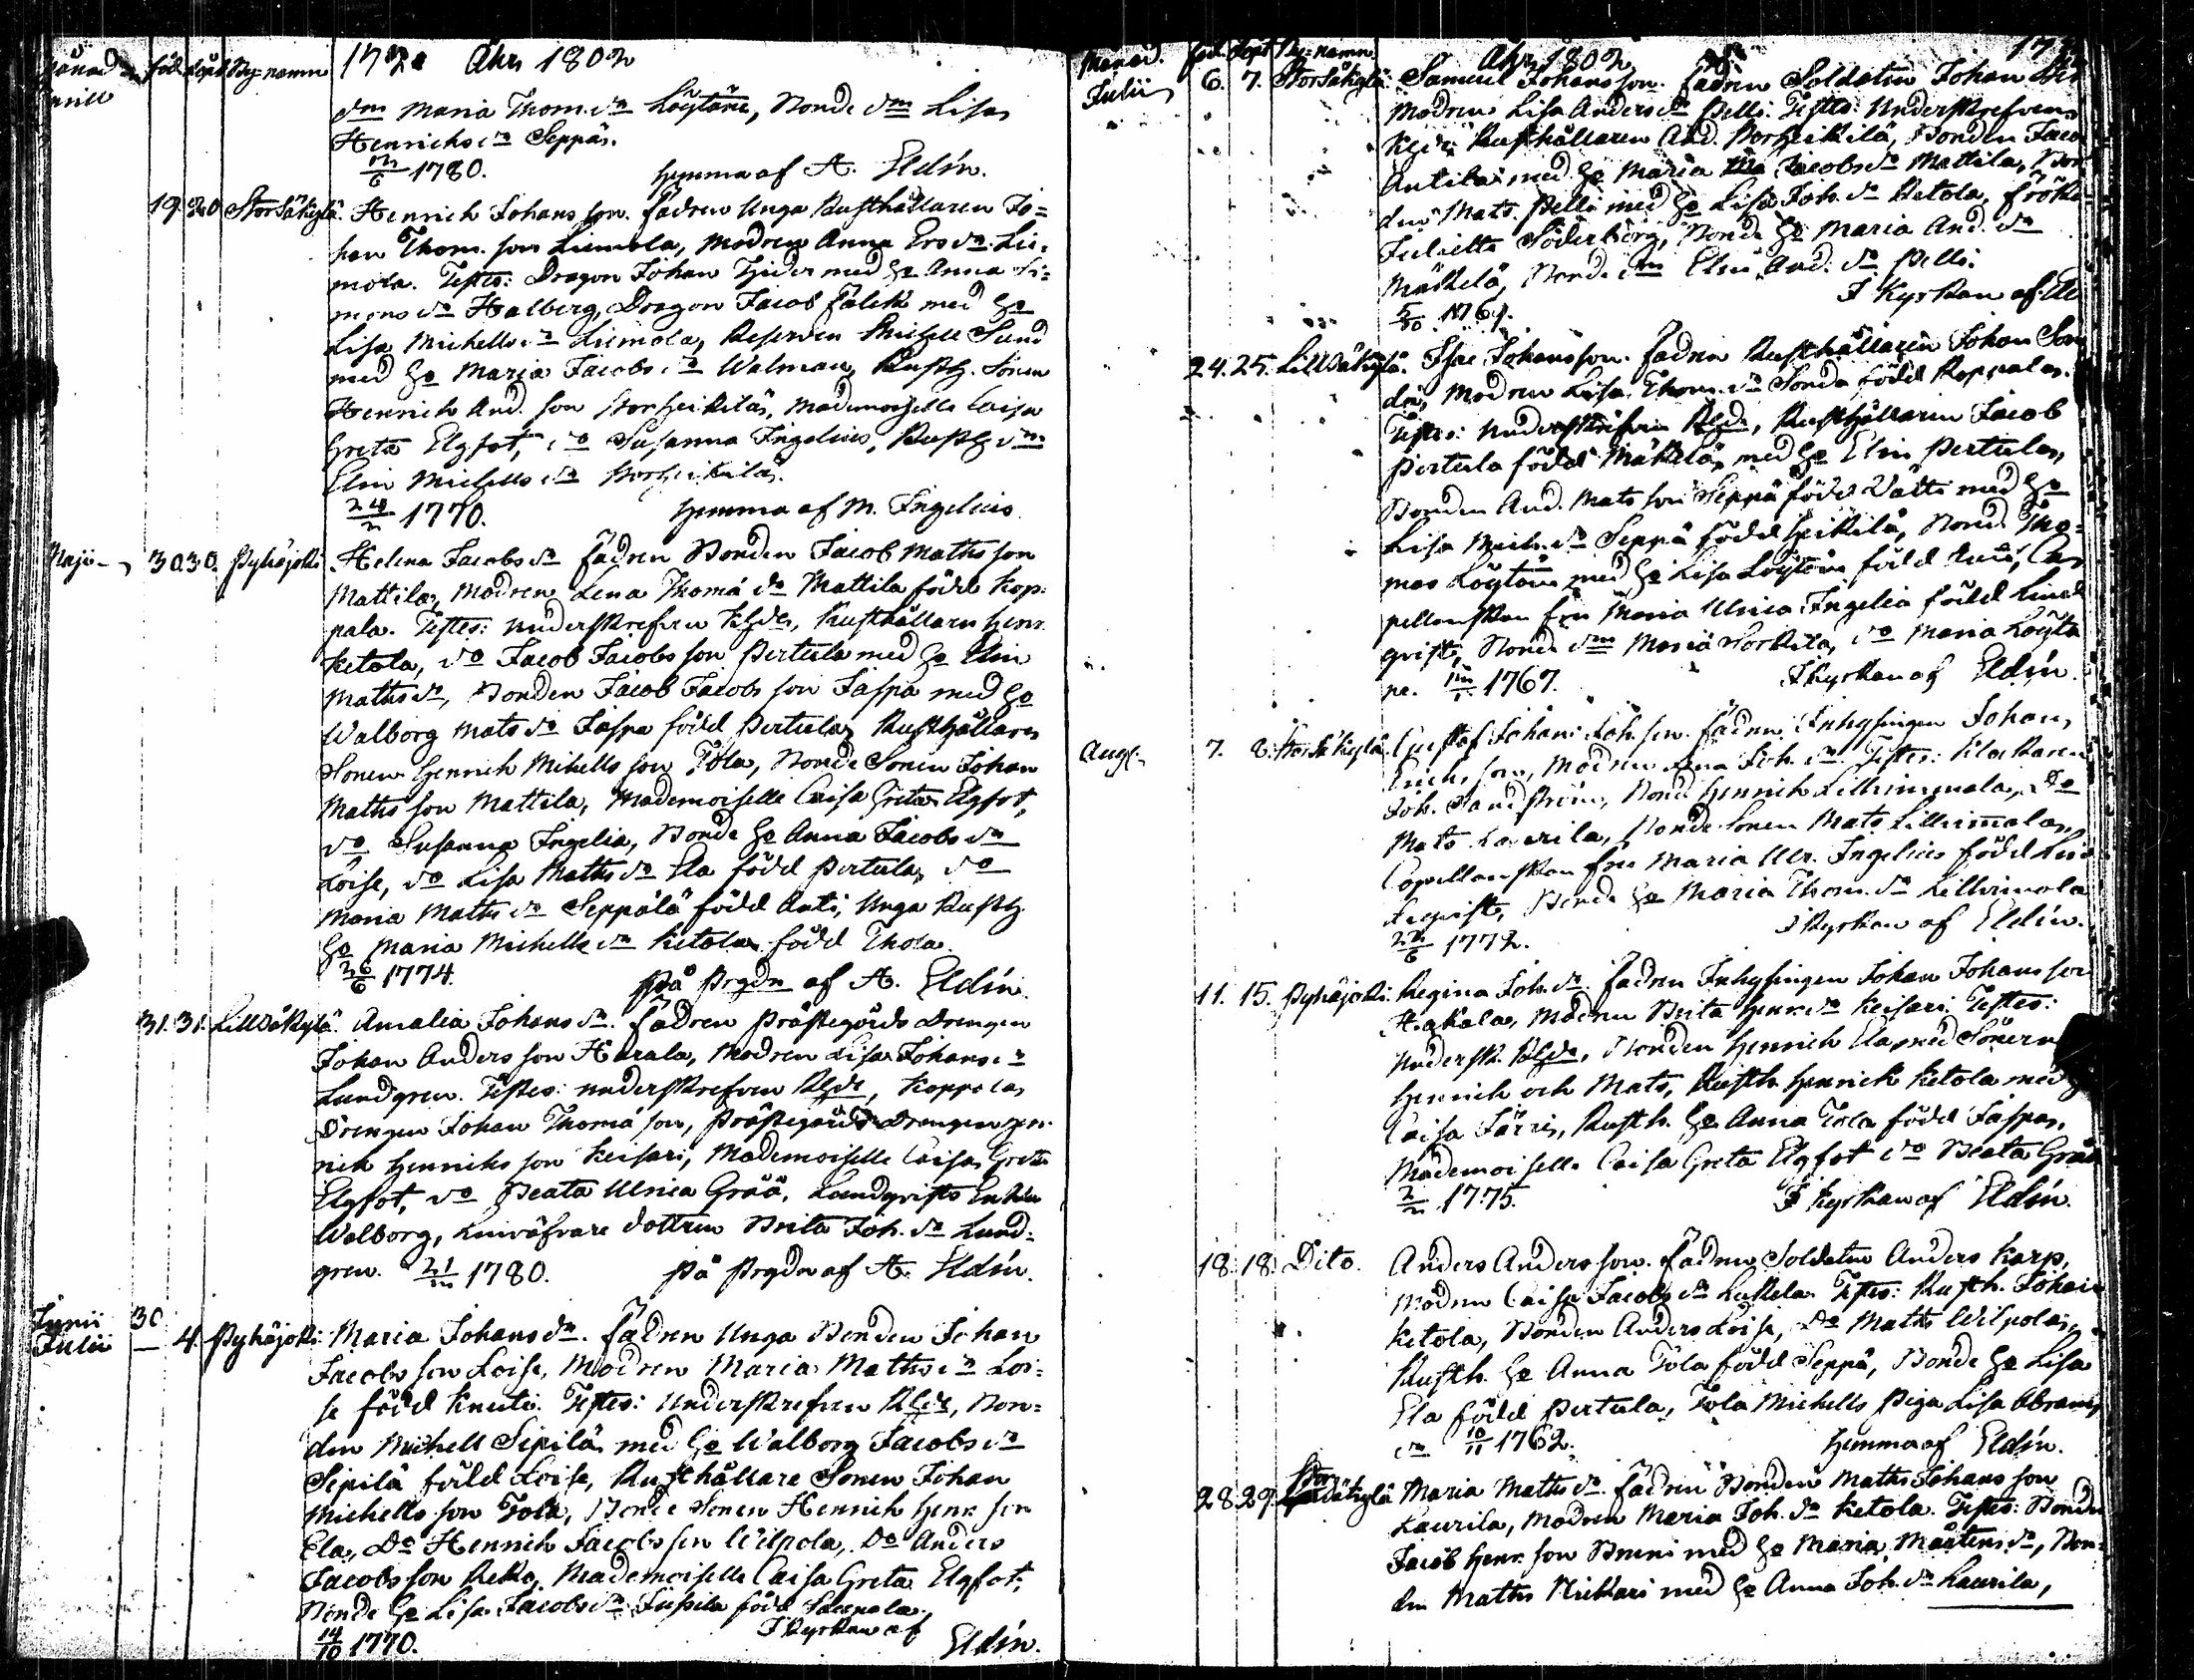 Månad föd. döpt. By-namn 172. Åhr 1802
Aprill
dr Maria Thom. dr Löytäne, Bonde dr Lisa
Henrichs dr Seppä.
6 1780. hemma af A. Eldin.
19. 20 Storsäkylä. Henrich Johans son. fadren Unga Rusthållaren Jo=
han Thom. son Liemola, modren Anna Ers dr Lie=
mola. Testes: Dragon Johan Hider med Ho Anna Si=
mons dr Halberg, Dragon Jacob Falck med Ho
Lisa Michells dr Liemola, Reserven Michell Sund
med Ho Maria Jacobs dr Walman, Rusth. Sonen
Henrich And. son Storheikkilä, Mademoiselle Caisa
Greta Elgfot, do Susanna Ingelius, Rusth. dr
Elin Michells dr Storheikkilä.
24/2 1770. hemma af M. Ingelius
Maji 30. 30. Pyhäjoki Helena Jacobs dr fadren Bonden Jacob Maths son
Mattila, Modren Lena Thomá dr Mattila född Kop=
pala. Testes: underskrefven Klde, Rusthållaren Henr.
Ketola, do Jacob Jacobs son Pertula med Ho Elin
Maths dr, Bonden Jacob Jacobs son Jaspa med Ho
Walborg Mats dr Jaspa född Pertula, Rusthållare
Sonen Henrich Mikells son Tola, Bonde Sonen Johan
Maths son Mattila, Mademoiselle Caisa Greta Elgfot,
do Susanna Ingelia, Bonde Ho Anna Jacobs dr
Loise, do Lisa Maths dr Ela född Pertula, do
Maria Maths dr Seppälä född Anti, Unga Rusth.
Ho Maria Michells dr Ketola född Thola.
26/6 1774. På Prgdn af A. Eldin.
31. 31. Lillsäkylä. Amalia Johans dr. fadren Prästegårds Drengen
Johan Anders son Harala, Modren Lisa Johans dr
Lundgren. Testes: underskrefven Klde, Koppala
Drengen Johan Thomá son, Prästegårds Drengen Hen=
rich Henriks son Keisari, Mademoiselle Caisa Greta
Elgfot, do Beata Ulrica Gråå, Lundqvists Enkan
Walborg, Linväfvare dottren Brita Joh. dr Lund=
gren. 21 1780. På Prgdn af A. Eldin.
Junii 30
Julii — 4. Pyhäjoki Maria Johans dr. fadren Unga Bonden Johan
Jacobs son Loise, Modren Maria Maths dr Loi=
se född Knuti. Testes: Underskrefven Klde, Bon=
den Michell Sipilä med Ho Walborg Jacobs dr
Sipilä född Loise, Rusthållare Sonen Johan
Michells son Tola, Bonde Sonen Henrich Henr. son
Ela, Do Henrich Jacobs son Wilpola, Do Anders
Jacobs son Rekko, Mademoiselle Caisa Greta Elgfot,
Bonde Ho Lisa Jacobs dr född
14/10 1770. I Kyrkan af Eldin.
Månad. föd. döpt By-namn Åhr 1802 17
Julii 6. 7. Storsäkylä Samuel Johans son. fadren Soldaten Johan
Modren Lisa Anders dr Pelli. Testes: Underskrefven
Klde Rusthållaren And. Storheikkilä, Bonden Jaco
Antila med Ho Maria Jacobs dr Mattila, Bon
den Mats Pelli med Ho Lisa Joh. dr Ketola, fröke
Julietta Söderborg, Bonde Ho Maria And. dr
Mäkelä, Bonde dr Elin And. dr Pelli.
5/10 1769. I Kyrkan af Eld
24. 25. Lillsäkylä. Isac Johans son. fadren Rusthållaren Johan Son
da, Modren Lisa Thom. dr Sonda född Koppala.
Testes: Underskrifven Klde, Rusthållaren Jacob
Pertula född Mäkelä, med Ho Elin Pertula,
Bonden And. Mats son Seppä född Vätti med Ho
Lisa Mich. dr Seppä född Heikkilä, Bond. Tho=
mas Löytäne med Ho Lisa Löytäne född Anti, Ca=
pellanskan fru Maria Ulrica Ingelia född Lind
qvist, Bond. dr Maria Sorkkila, do Maria Löytä
ne. 1767. I Kyrkan af Eldin.
Aug. 7. 8. Storsäkylä Gustaf Johan Joh. son. fadren Inhysingen Johan
Erichs son, Modren Anna Joh. dr. Testes: Klockaren
Joh. Sandström, Bond. Henrich Lillriimala, Do
Mats Laurila, Bonde Sonen Mats Lillrimala,
Capellanskan fru Maria Ulr. Ingelius född Lin
deqvist, Bonde Ho Maria Thom. dr Lillrimola
22/6 1772. I Kyrkan af Eldin.
11. 15. Pyhäjoki Regina Joh. dr. fadren Inhysingen Johan Johans son
Hakala, Modren Brita Henr. dr Keisari. Testes:
Undersk. Klde, Bonden Henrich Ela med Sönern
Henrich och Mats, Rusth. Henrick Ketola med
Caisa Järri, Rusth. Ho Anna Tola född Jaspa,
Mademoiselle Caisa Greta Elgfot do Beata Gråå
2 1775. I Kyrkan af Eldin.
18. 18. Dito. Anders Anders son. fadren Soldaten Anders Karp,
Modren Caisa Jacobs dr Kukkela. Testes: Rusth. Johan
Ketola, Bonden Anders Loise, Do Maths Wilpola,
Rusth. Ho Anna Tola född Seppä, Bonde Ho Lisa
Ela född Pertula, Tola Michells Piga Lisa Abrams
dr 10/11 1762. Hemma af Eldin.
28. 29. Storsäkylä Maria Maths dr. fadren Bonden Maths Johans son
Laurila, Modren Maria Joh. dr Ketola. Testes: Bonden
Jacob Henr. son Bruni med Ho Maria Mårtens dr, Bon=
den Maths Nickari med Ho Anna Joh. dr Laurila,